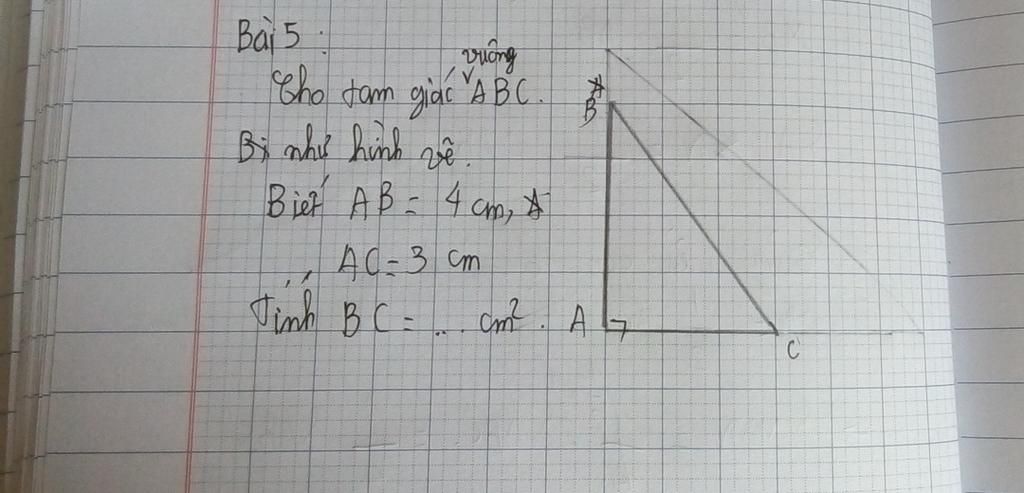 Bài 5 :
Cho tam giác vuông ABC.
như hình vẽ.
Biết AB = 4 cm,
AC = 3 cm
Tính BC = ... cm².
B
A
C